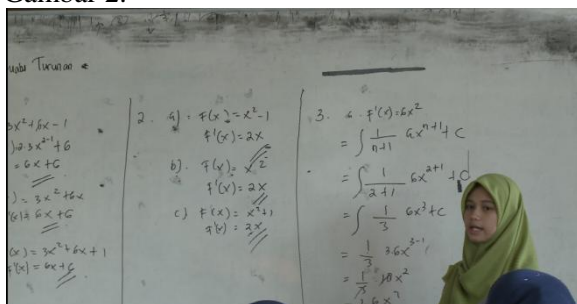 Gambar 2.
Turunan
3x²+6x-1
= 6x+6
) = 3x²+6x
6x+6
(x) = 3x²+6x+1
f'(x) = 6x+6
2. a). F(x) = x²-1
F'(x) = 2x
b). F(x) = x²
F'(x) = 2x
c) F(x) = x²+1
F'(x) = 2x
3. a. F'(x) = 6x²
= ∫ 1/n+1 ax^n+1 + C
= ∫ 1/2+1 6x^2+1 + C
= ∫ 1/3 6x³+C
= 1/3 3.6x^3-1